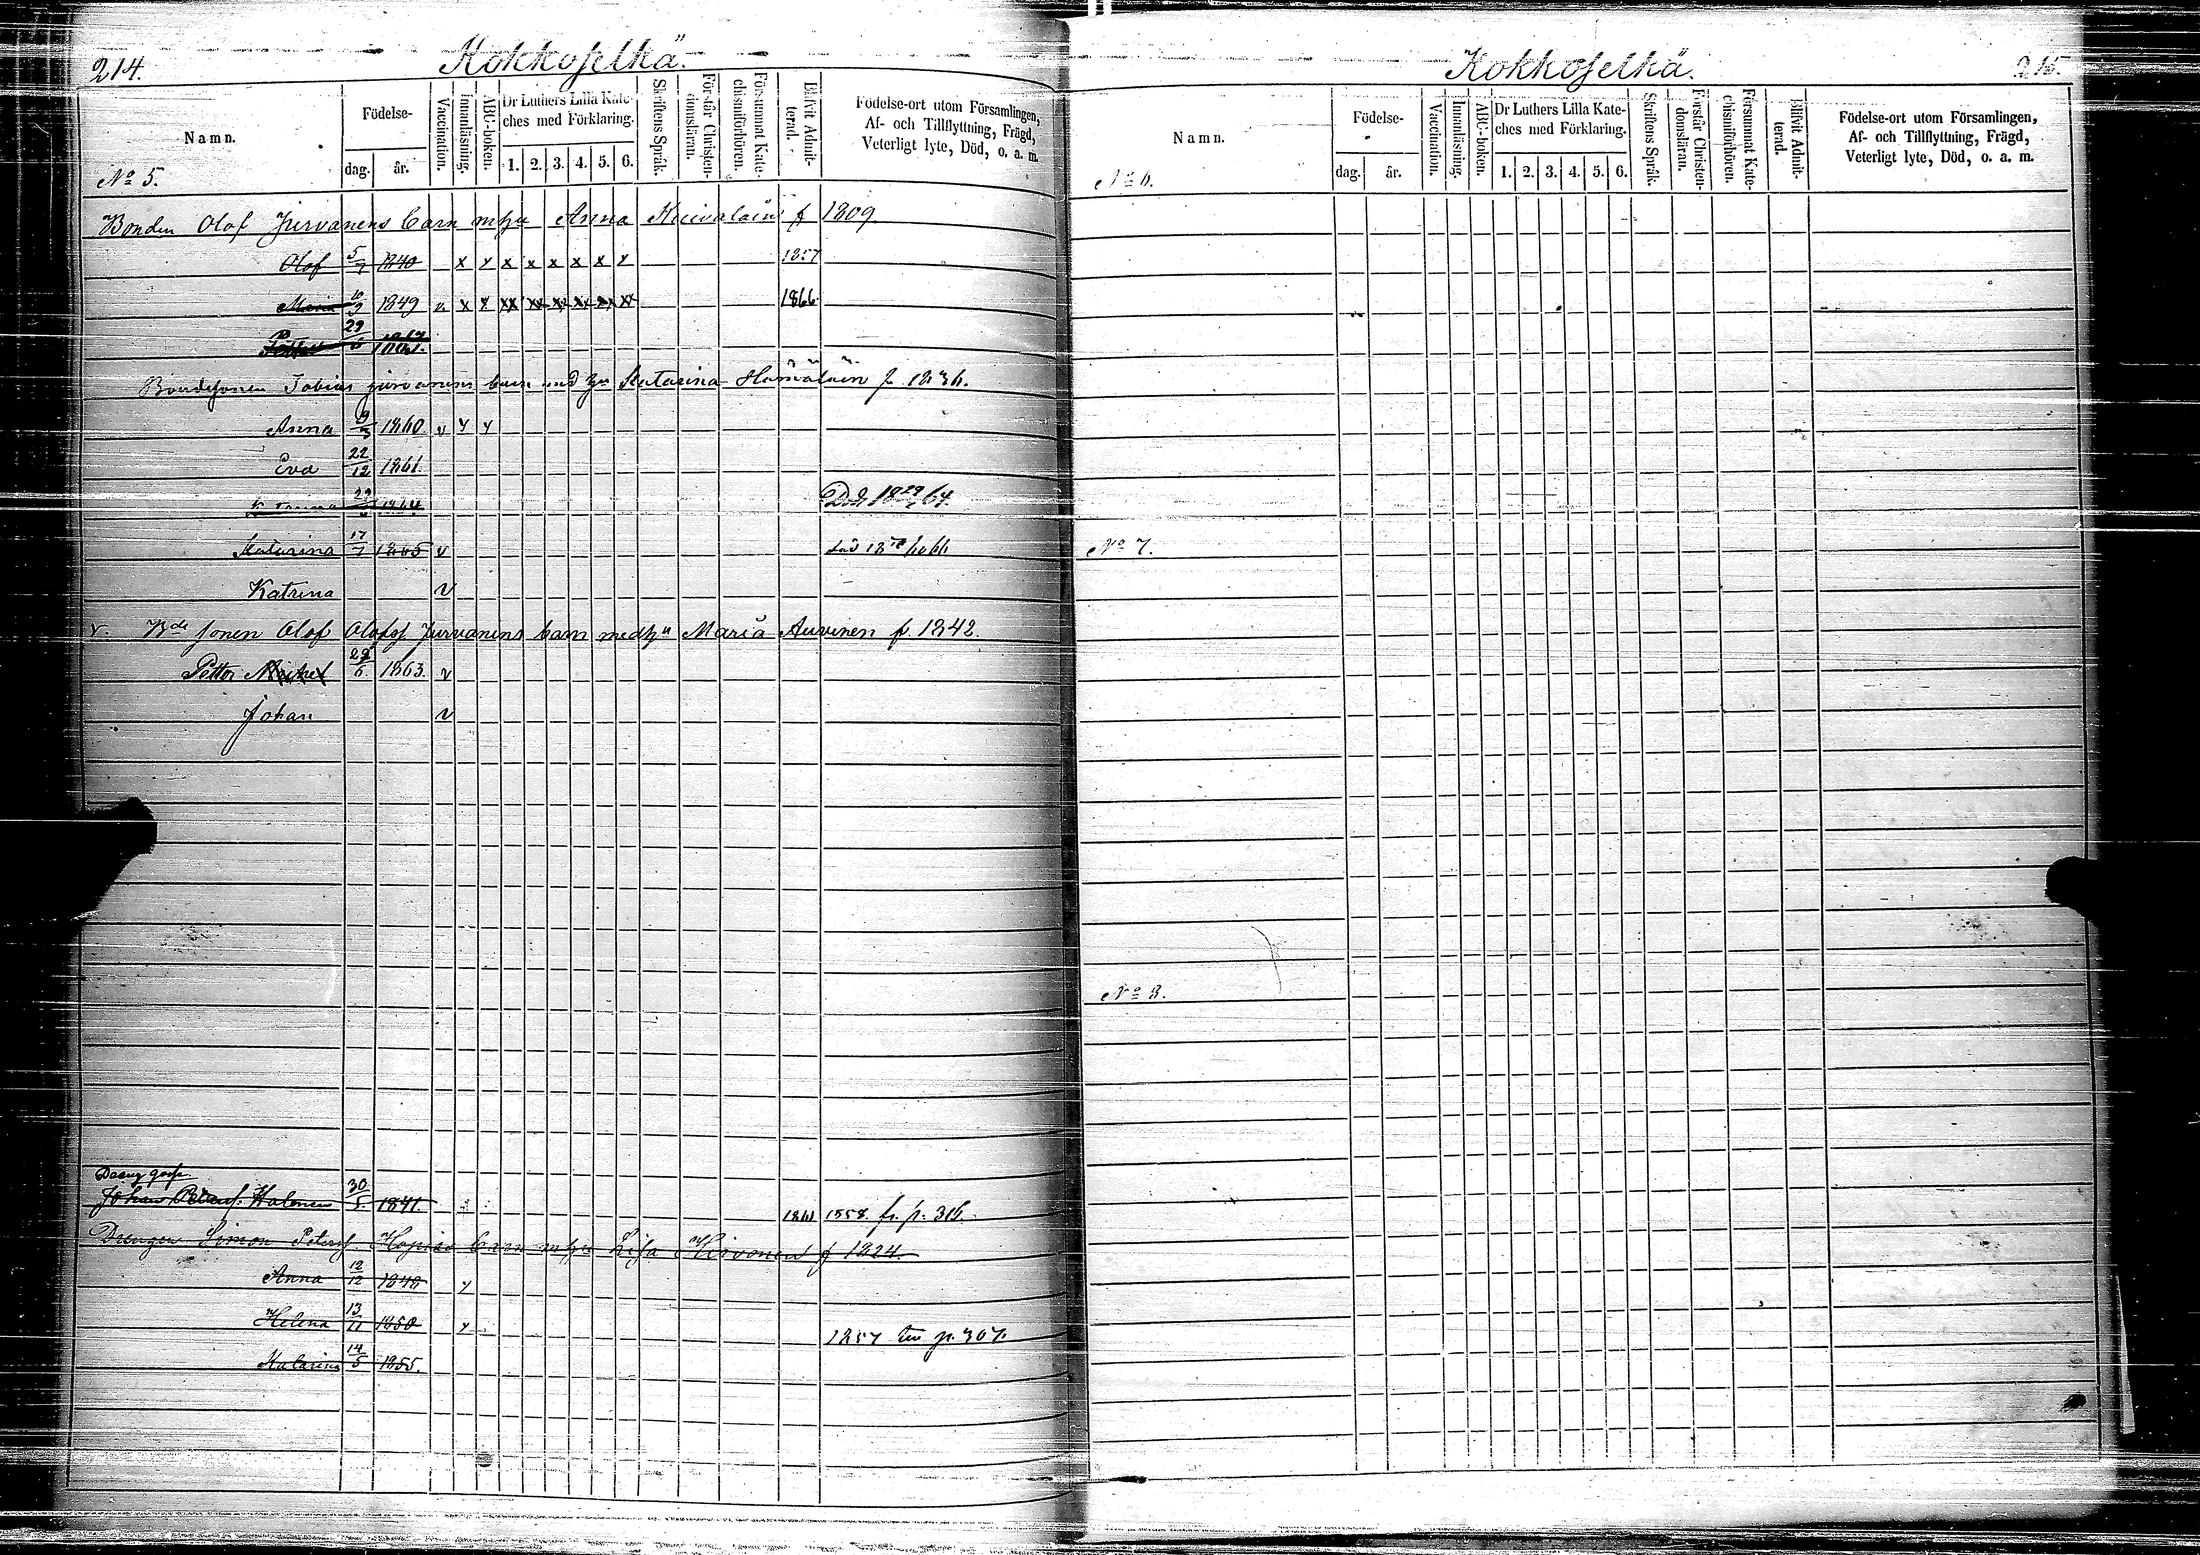 214.
Kokkoselkä.
Namn.
Födelse-
dag.
år.
Vaccination.
Innanläsning.
ABC-boken.
Dr Luthers Lilla Kate-
ches med Förklaring.
1. 2. 3. 4. 5. 6.
Skriftens Språk.
Förstår Christen-
domsläran.
Försummat Kate-
chismiförhören.
Blifvit Admit-
terad.
Födelse-ort utom Församlingen,
Af- och Tillflyttning, Frägd,
Veterligt lyte, Död, o. a. m.
No 5.
Bonden Olof Jurvanens barn m hu Anna f 1809
Olof 5/7 1840 x x x x x x x x 1857
Maria 10/9 1849 v x x xx xx xx xx xx xx 1866
Petter 29/6
Bondesonen Tobias Jurvanens barn med hu Katarina Hämäläin f. 1836.
Anna 9/3 1860 v x x
Eva 22/12 1861.
1864 Död 18 29/ 64.
Katarina 17/7 1865 v död 18 66
Katrina v
v. Bde sonen Olof Olofss Jurvanens barn med hu Maria Auvinen f. 1842.
Petter Michel 29/6 1863. v
Johan v
Dreng goss.
Johan Peterss. Halonen 30/5 1841. 1858 fr. p. 316.
Drengen Simon Peterss. barn m hu Lisa Hirvonen f 1824.
Anna 12/12 1848 x
Helena 13/11 1850 x 1857 till p. 307.
Katarina 14/5 1855.
Kokkoselkä.
215.
Namn.
Födelse-
dag.
år.
Vaccination.
Innanläsning.
ABC-boken.
Dr Luthers Lilla Kate-
ches med Förklaring.
1. 2. 3. 4. 5. 6.
Skriftens Språk.
Förstår Christen-
domsläran.
Försummat Kate-
chismiförhören.
Blifvit Admit-
terad.
Födelse-ort utom Församlingen,
Af- och Tillflyttning, Frägd,
Veterligt lyte, Död, o. a. m.
No 6.
No 7.
No 8.